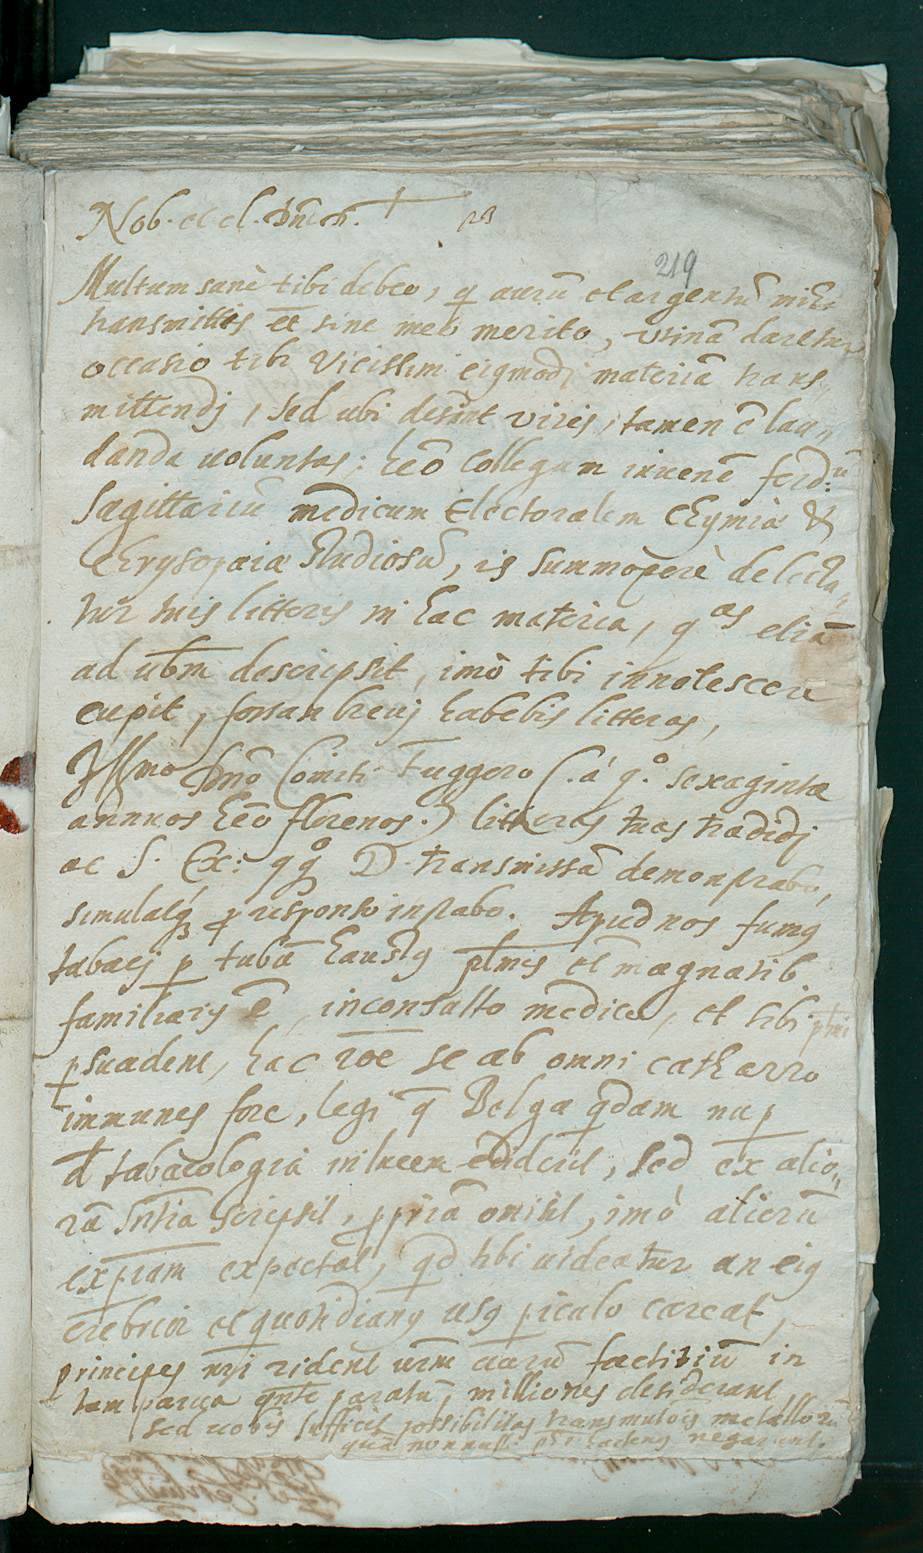 Nob. et cl. Dn̄e ch. †
219
Multum sanè tibi debeo, q̄ aurū et argentū mihi
transmittis et sine meo merito, utinā daretur
occasio tibi vicissim eiqmodi materiā trans,,
mittendj, sed ubi desint vires, tamen ē lau,,
danda uoluntas: heō Collegam iuuenē ferd:ū
Sagittariū medicum Electoralem chymiæ &
Chrysopœiæ studiosū, is summoperè delecta,,
tur tuis litteris in hac materia, qas etiā
ad ubm descripsit, imò tibi innotescere
cupit, forsan breuj habebis litteras,
Illmo Dnō Comiti Fuggero (. à qo sexaginta
annuos heō florenos.) litteras tuas tradidj
ac S. Ex: D. transmissā demonstrabo,
simulatq3 p responso instabo. Apud nos fumq
tabacj p tubā haustq plmis et magnatib
familiaris ē, inconsulto medico, et sibi plmi
psuadent, hac rōe se ab omni catharro
immunes fore, legi q̄ Belga qdam nup
d tabacologia in lucem edidērit, sed ex alio,,
rū sntia scripsit, ppriā omisit, imò aliorū
expiam expectat, qd tibi uideatur an eiq
crebrior et quotidianq usq piculo careat,
principes nri rident urm aurū factitiū in
tam parua qntte paratū, milliones desiderant
sed uobis sufficit possibilitas transmutōis metallorū
quā nonnulli negarunt.